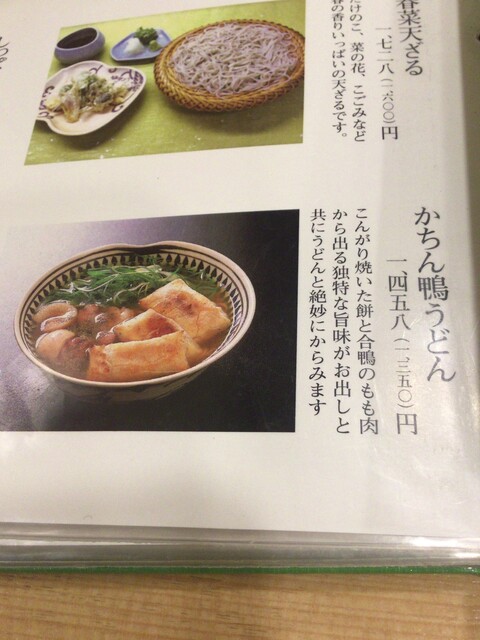 春菜天ざる
一、七二八(一、六〇〇)円
たけのこ、菜の花、こごみなど
春の香りいっぱいの天ざるです。
かちん鴨うどん
一、四五八(一、三五〇)円
こんがり焼いた餅と合鴨のもも肉
から出る独特な旨味がお出しと
共にうどんと絶妙にからみます